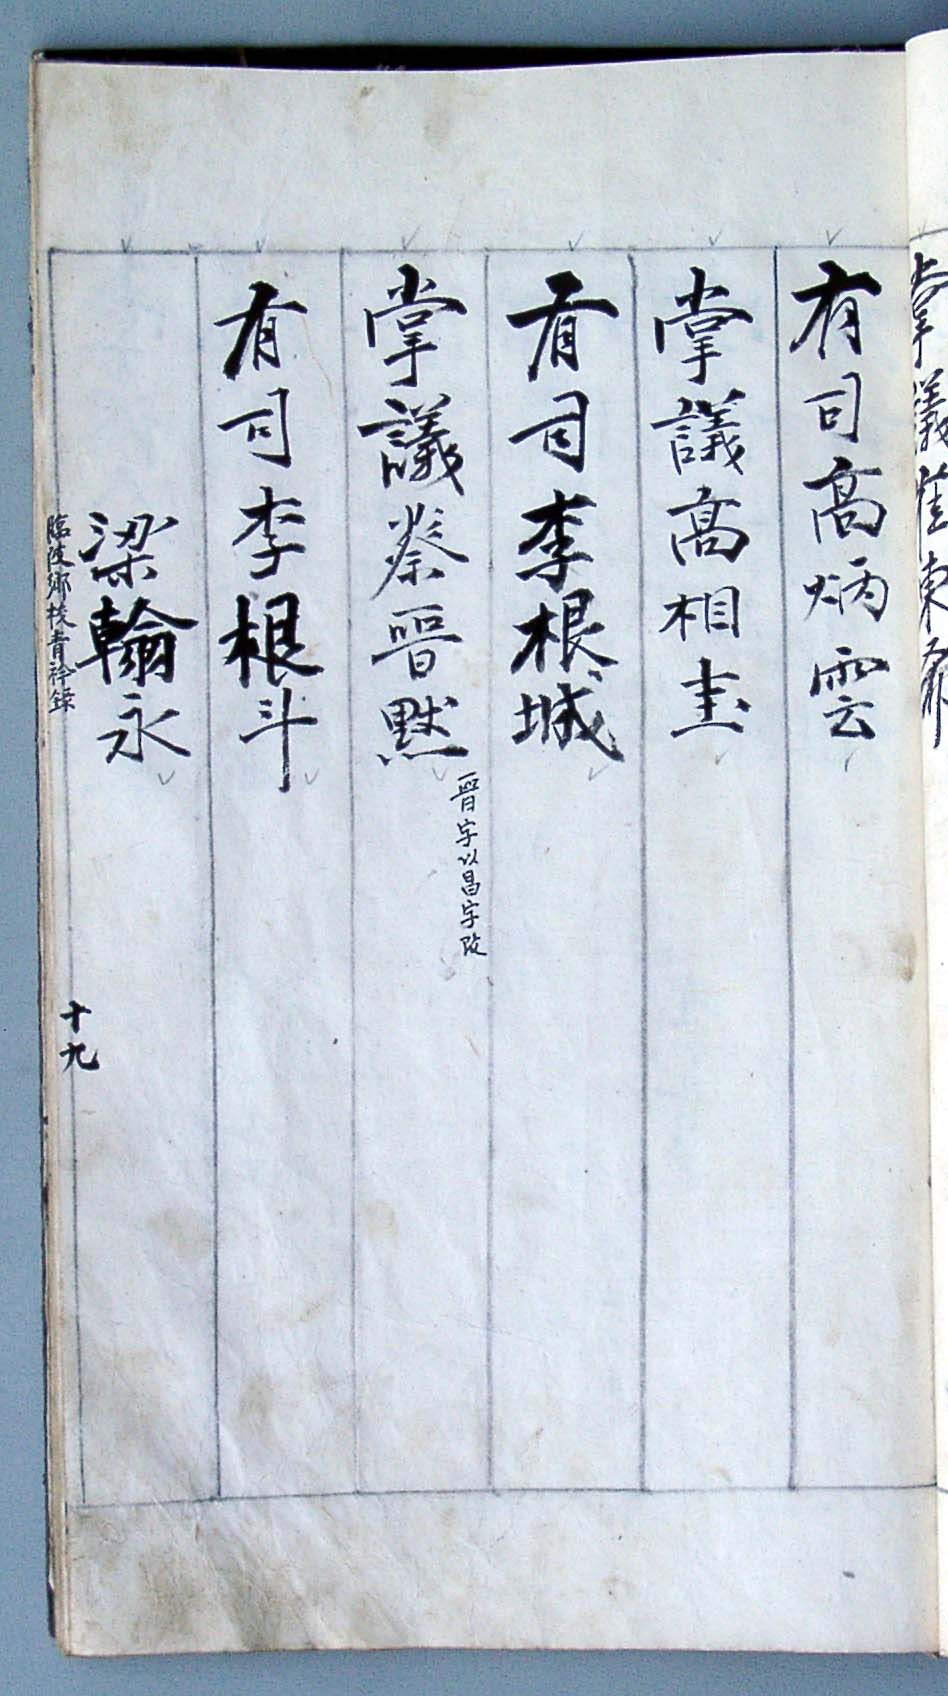 有司高炳雲
掌議高相圭
有司李根城
掌議蔡晋默
晋字以昌字改
有司李根斗
梁翰永
臨陂鄉校青衿錄
十九